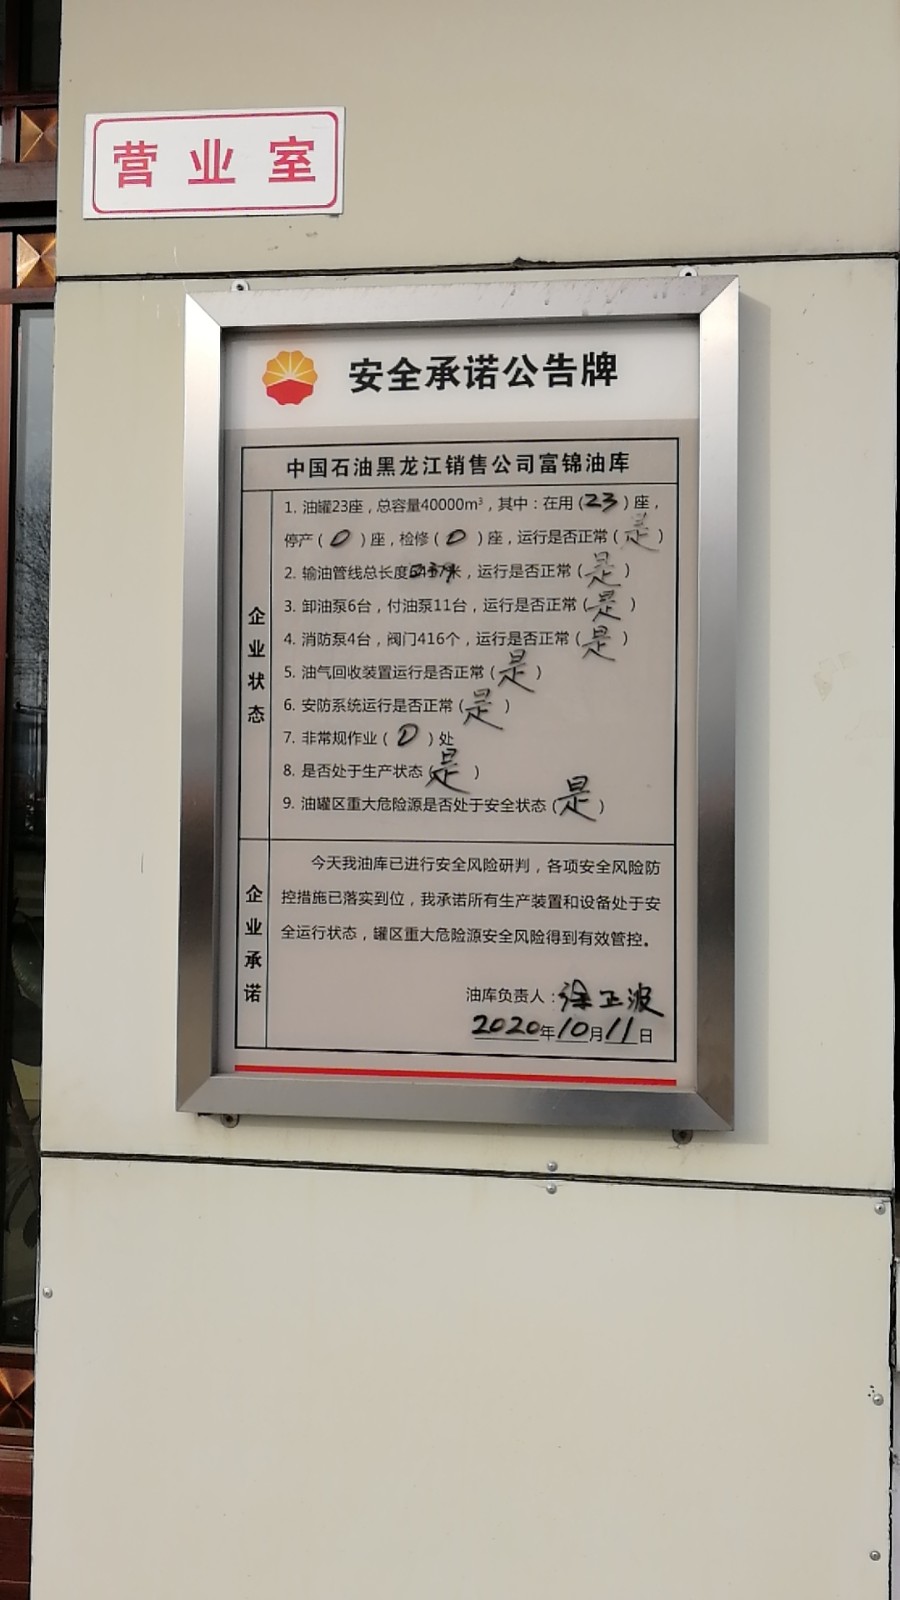 营业室
安全承诺公告牌
中国石油黑龙江销售公司富锦油库
企业状态
1. 油罐23座，总容量40000m³，其中：在用（23）座，
停产（0）座，检修（0）座，运行是否正常（是）
2. 输油管线总长度米，运行是否正常（是）
3. 卸油泵6台，付油泵11台，运行是否正常（是）
4. 消防泵4台，阀门416个，运行是否正常（是）
5. 油气回收装置运行是否正常（是）
6. 安防系统运行是否正常（是）
7. 非常规作业（0）处
8. 是否处于生产状态（是）
9. 油罐区重大危险源是否处于安全状态（是）
企业承诺
今天我油库已进行安全风险研判，各项安全风险防
控措施已落实到位，我承诺所有生产装置和设备处于安
全运行状态，罐区重大危险源安全风险得到有效管控。
油库负责人：徐正波
2020年10月11日